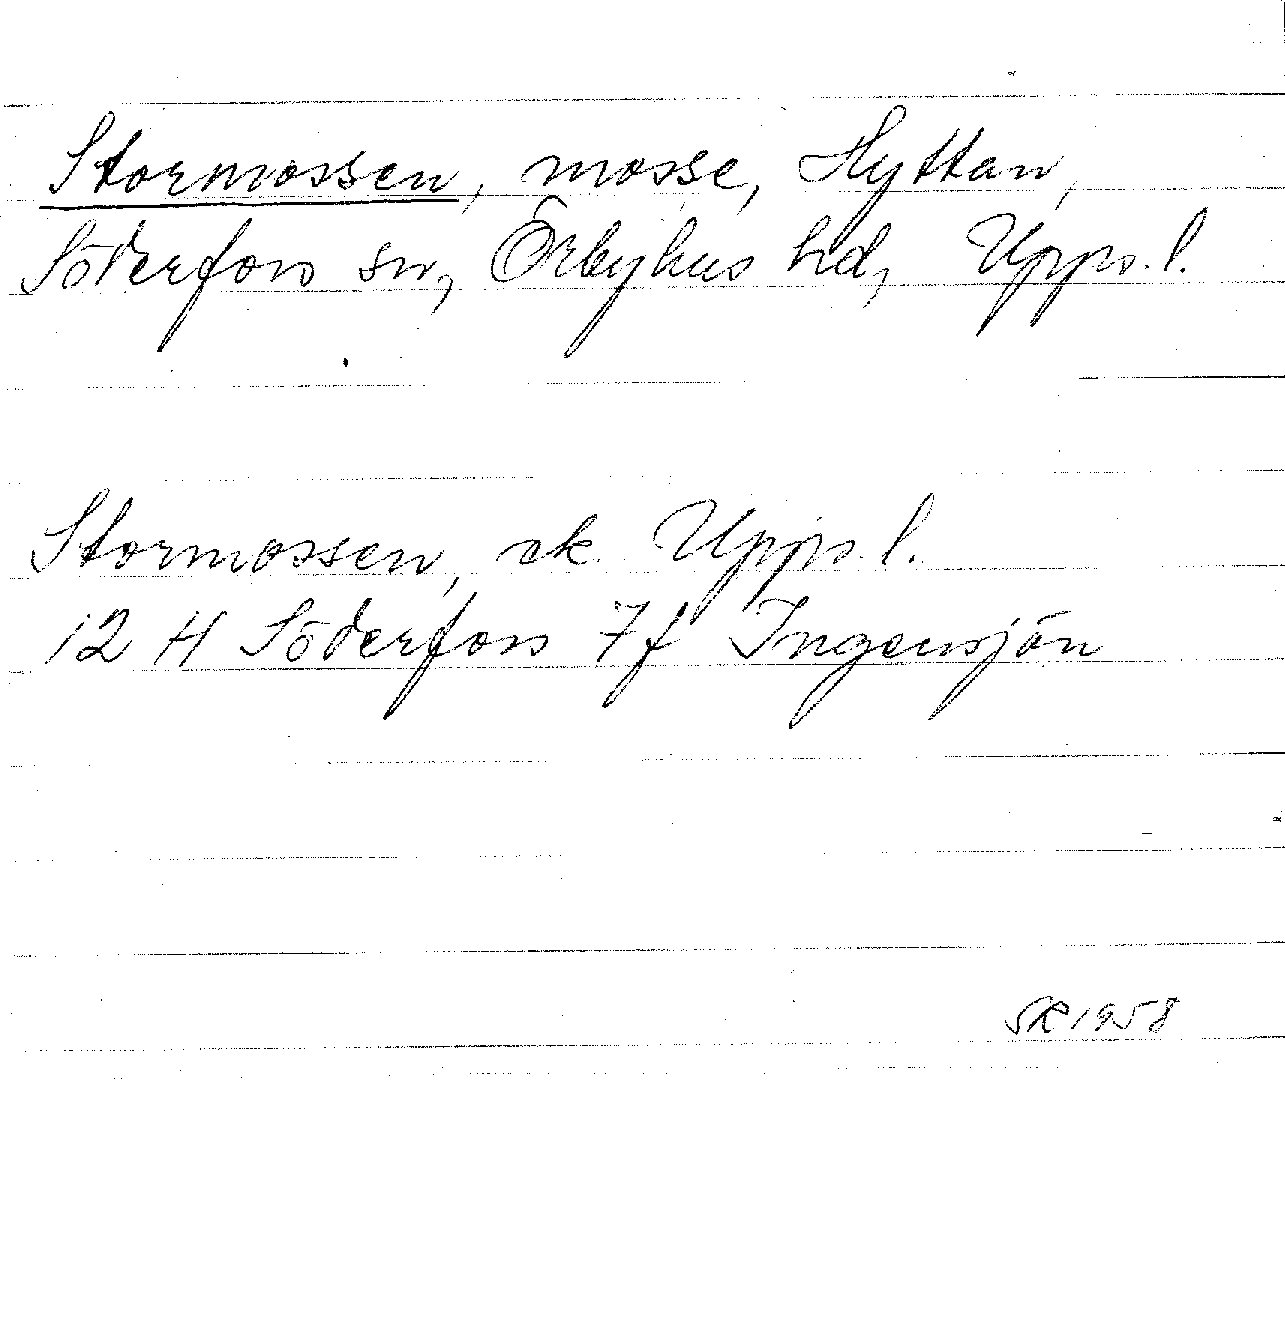 Stormossen, mosse, Hyttan,
Söderfors sn, Örbyhus hd, Upps. l.
Stormossen, ek. Upps. l.
12 H Söderfors 7f Ingensjön
SR 1958